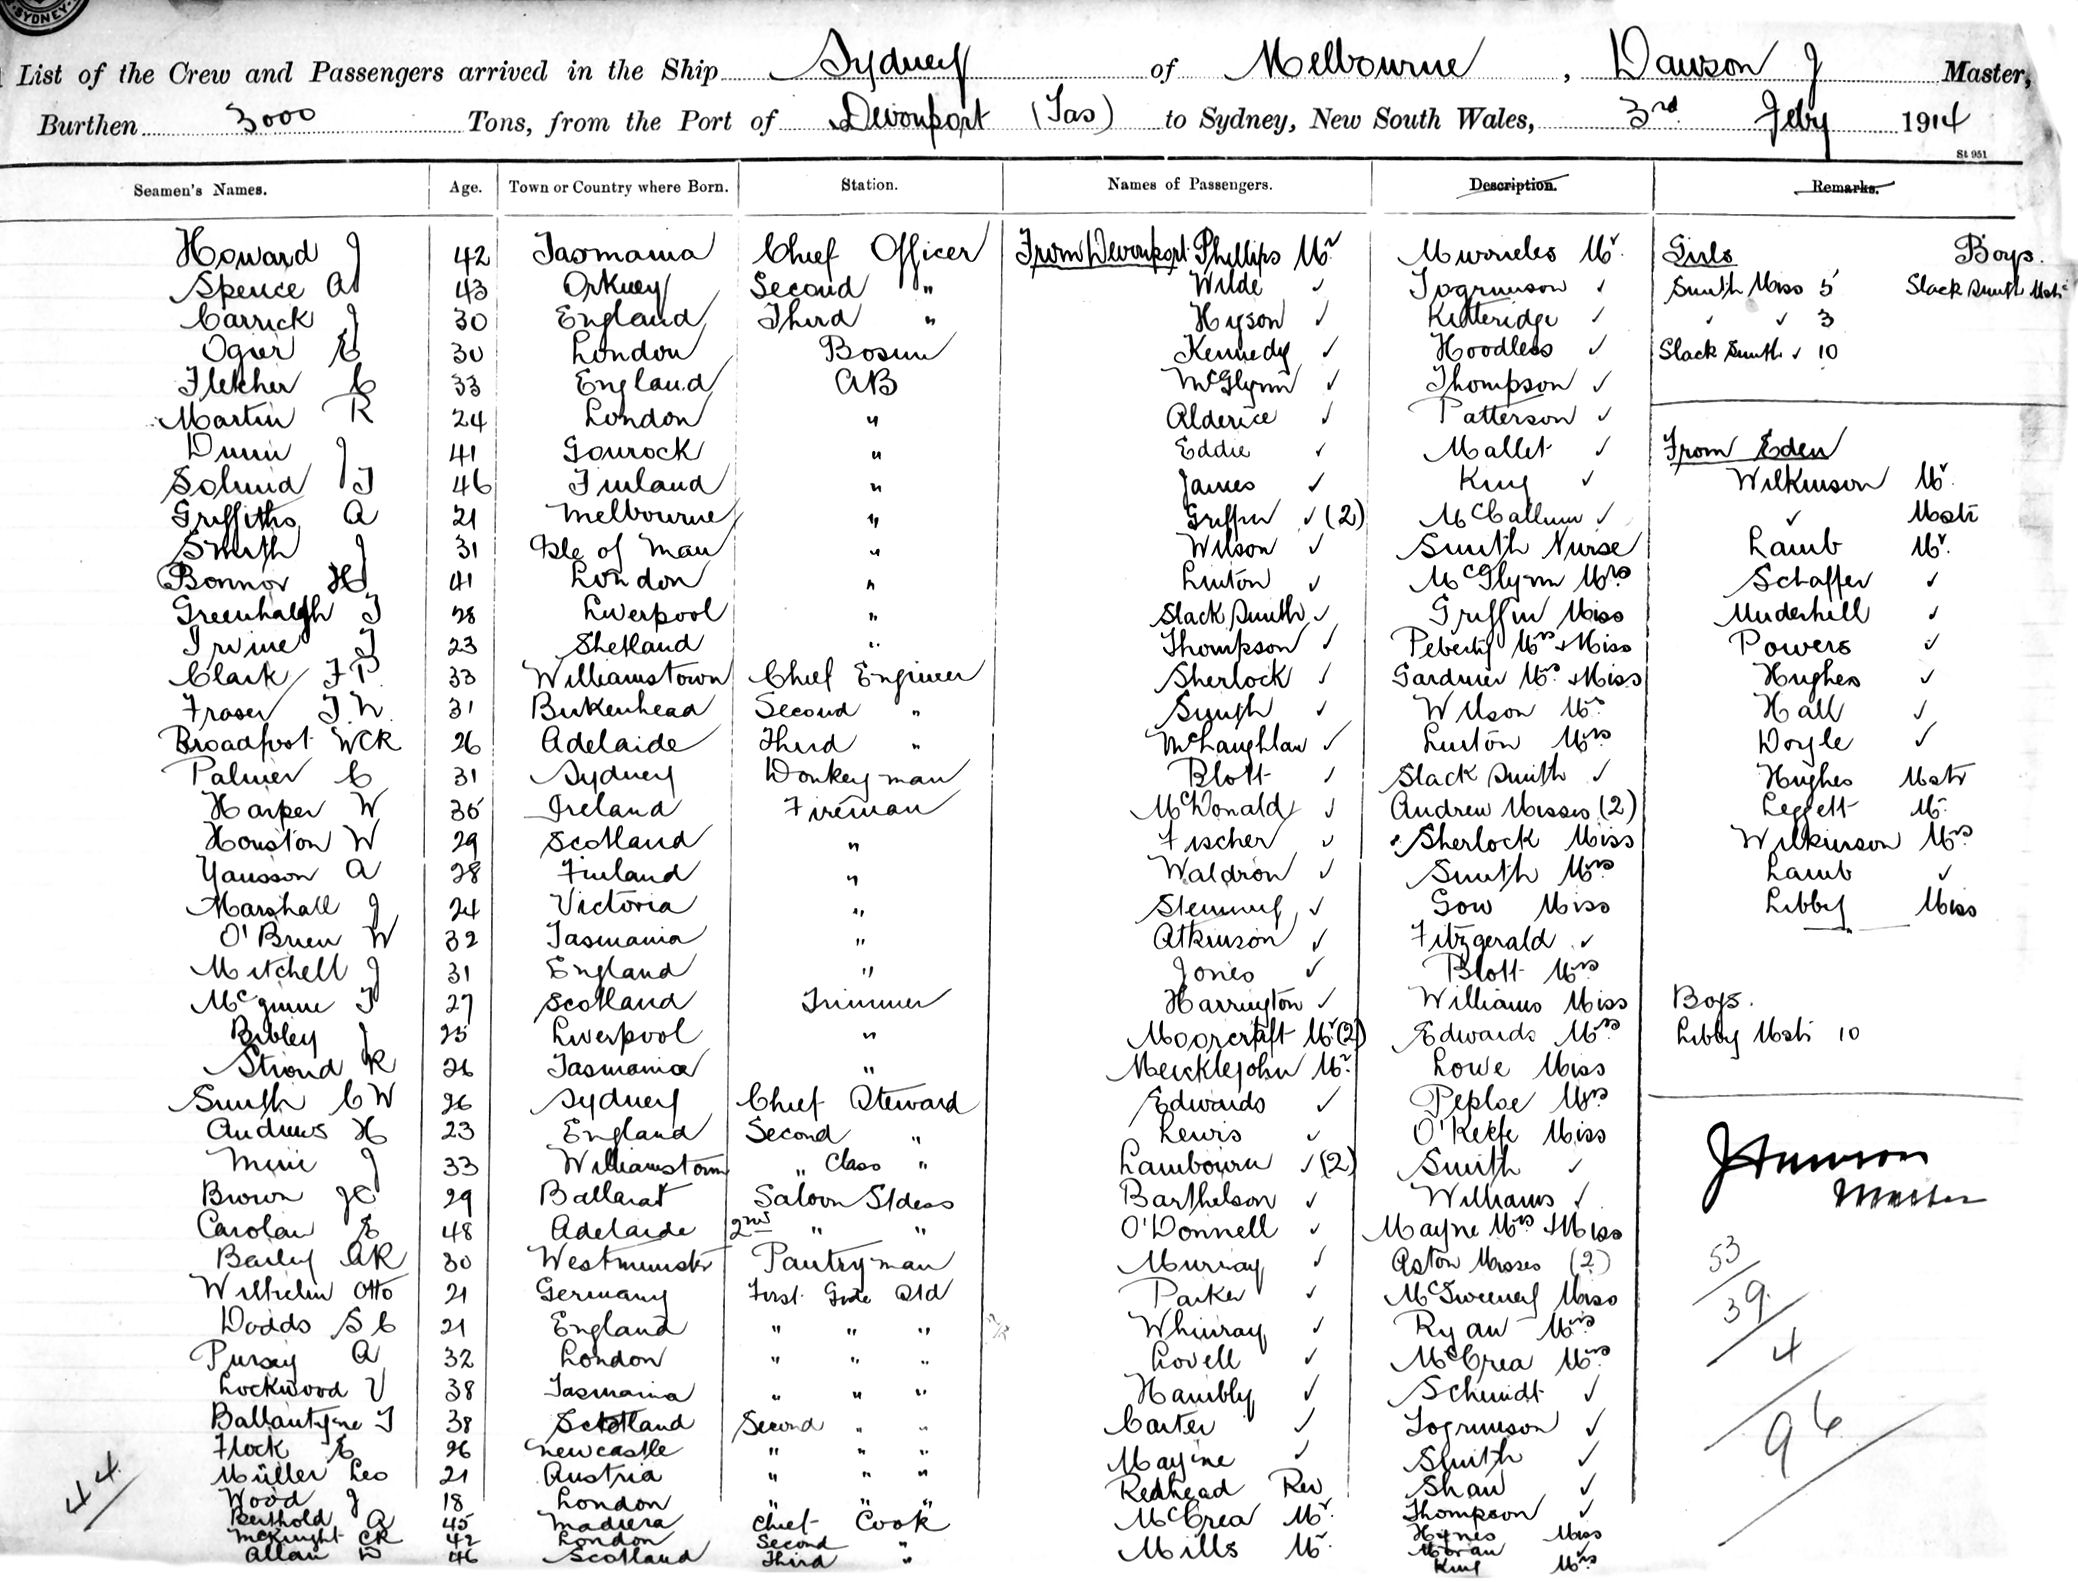 SYDNEY
List of the Crew and Passengers arrived in the Ship Sydney of Melbourne, Dawson J Master,
Burthen 3000 Tons, from the Port of Devonport (Tas) to Sydney, New South Wales, 3rd Feby 1914
St 951
Seamen's Names. Age. Town or Country where Born. Station. Names of Passengers. Description. Remarks.
Howard J 42 Tasmania Chief Officer From Devonport Phillips Mr Murrieles Mr Girls Boys.
Spence A 43 Orkney Second " Wilde ✓ Togrimson ✓ Smith Miss 5 Slack Smith Mstr
Carrick J 30 England Third " Hyson ✓ Kitteridge ✓ ✓ ✓ 3
Ogier E 30 London Bosun Kennedy ✓ Hoodless ✓ Slack Smith ✓ 10
Fletcher C 33 England AB McGlynn ✓ Thompson ✓
Martin R 24 London " Alderice ✓ Patterson ✓
Dunn J 41 Gourock " Eddie ✓ Mallet ✓ From Eden
Solund J 46 Finland " James ✓ King ✓ Wilkinson Mr
Griffiths A 21 Melbourne " Griffin ✓ (2) McCallum ✓ ✓ Mstr
Smith J 31 Isle of Man " Wilson ✓ Smith Nurse Lamb Mr.
Bonnor H 41 London " Linton ✓ McGlynn Mrs Schaffer ✓
Greenhalgh J 28 Liverpool " Slack Smith ✓ Griffin Miss Underhill ✓
Irvine J 23 Shetland " Thompson ✓ Peberty Mrs + Miss Powers ✓
Clark F P 33 Williamstown Chief Engineer Sherlock ✓ Gardner Mrs + Miss Hughes ✓
Fraser J W 31 Birkenhead Second " Smith ✓ Wilson Mrs Hall ✓
Broadfoot WCR 26 Adelaide Third " McLaughlan ✓ Linton Mrs Doyle ✓
Palmer C 31 Sydney Donkeyman Blott ✓ Slack Smith ✓ Hughes Mstr
Harper W 35 Ireland Fireman McDonald ✓ Andrew Misses (2) Leggett Mr
Houston W 29 Scotland " Fischer ✓ Sherlock Miss Wilkinson Mrs
Yansson A 28 Finland " Waldron ✓ Smith Mrs Lamb ✓
Marshall J 24 Victoria " ✓ Gow Miss Libby Miss
O'Brien W 32 Tasmania " Atkinson ✓ Fitzgerald ✓
Mitchell J 31 England " Jones ✓ Blott Mrs
McGinne J 27 Scotland Trimmer Harrington ✓ Williams Miss Boys.
Bibley J 25 Liverpool " Moorcraft Mr (2) Edwards Mrs Libby Mstr 10
Strond R 26 Tasmania " Meicklejohn Mr Lowe Miss
Smith C W 26 Sydney Chief Steward Edwards ✓ Peploe Mrs
Andrews H 23 England Second " Lewis ✓ O'Keefe Miss
J 33 Williamstown " Class " Lambourn ✓ (2) Smith ✓ Master
Brown 29 Ballarat Saloon Stdess Barthelson ✓ Williams ✓
Carolan E 48 Adelaide 2nd " " O'Donnell ✓ Mayne Mrs + Miss
Baily AR 30 Westminster Pantryman Murray ✓ Aston Misses (2) 53
Wilhelm Otto 21 Germany First Grde Atd Parker ✓ McSweeney Miss 39
Dodds S C 21 England " " " Whinray ✓ Ryan Mrs
Pursey A 32 London " " " Lovell ✓ McCrea Mrs 4
Lockwood V 38 Tasmania " " " Hambly ✓ Schmidt ✓
Ballantyne J 38 Scotland Second " " Carter ✓ Togrimson ✓ 96
Flock E 26 Newcastle " " " Mayne ✓ Smith ✓
44 Müller Leo 21 Austria " " " Redhead Rev Shaw ✓
Wood J 18 London " " " McCrea Mr Thompson ✓
Berthold A 45 Madiera Chief Cook Mills Mr Hynes Miss
McKnight CR 42 London Second " Moran ✓
Allan W 46 Scotland Third " King Mrs